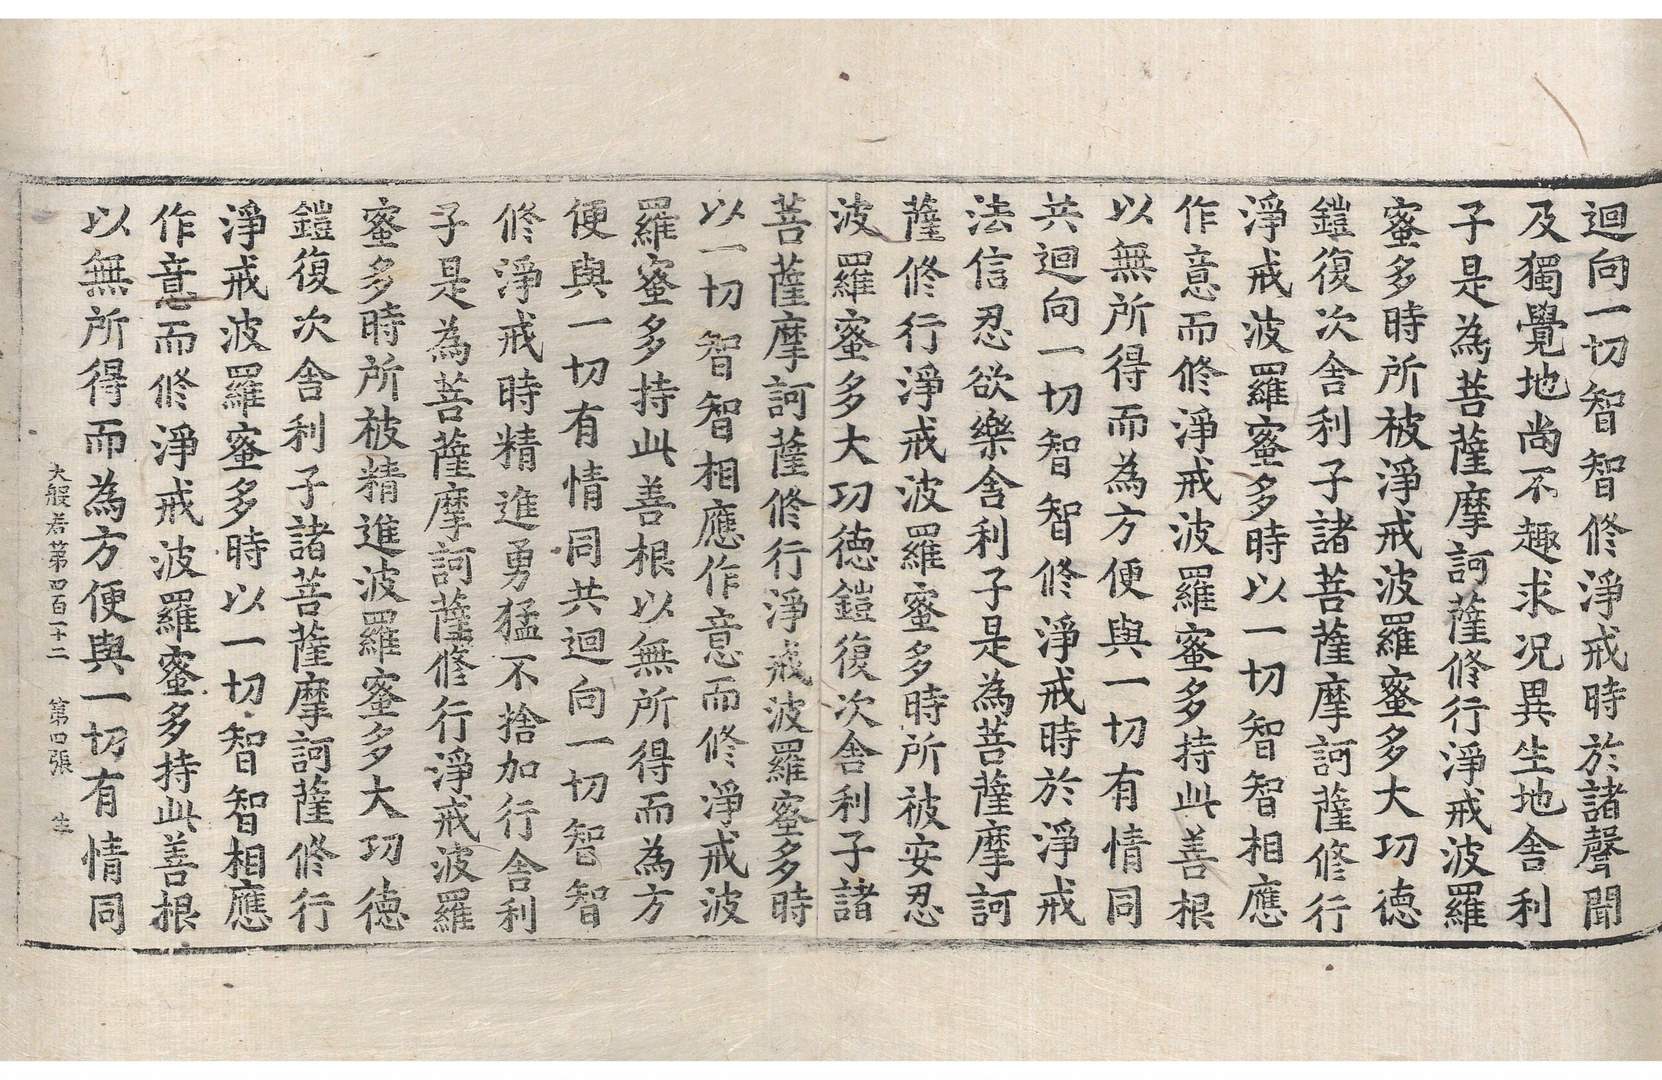 迴向一切智智修淨戒時於諸聲聞
及獨覺地尚不趣求况異生地舎利
子是為菩薩摩訶薩修行淨戒波羅
蜜多時所被淨戒波羅蜜多大功德
鎧復次舎利子諸菩薩摩訶薩修行
淨戒波羅蜜多時以一切智智相應
作意而修淨戒波羅蜜多持此善根
以無所得而為方便與一切有情同
共迴向一切智智修淨戒時於淨戒
法信忍欲樂舎利子是為菩薩摩訶
薩修行淨戒波羅蜜多時所被安忍
波羅蜜多大功德鎧復次舎利子諸
菩薩摩訶薩修行淨戒波羅蜜多時
以一切智智相應作意而修淨戒波
羅蜜多持此善根以無所得而為方
便與一切有情同共迴向一切智智
修淨戒時精進勇猛不捨加行舎利
子是為菩薩摩訶薩修行淨戒波羅
蜜多時所被精進波羅蜜多大功德
鎧復次舎利子諸菩薩摩訶薩修行
淨戒波羅蜜多時以一切智智相應
作意而修淨戒波羅蜜多持此善根
以無所得而為方便與一切有情同
大般若第四百一十二 第四張